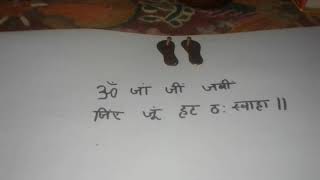 ॐ जां जीं जबीं
जिए जूं हट ठः स्वाहा ||